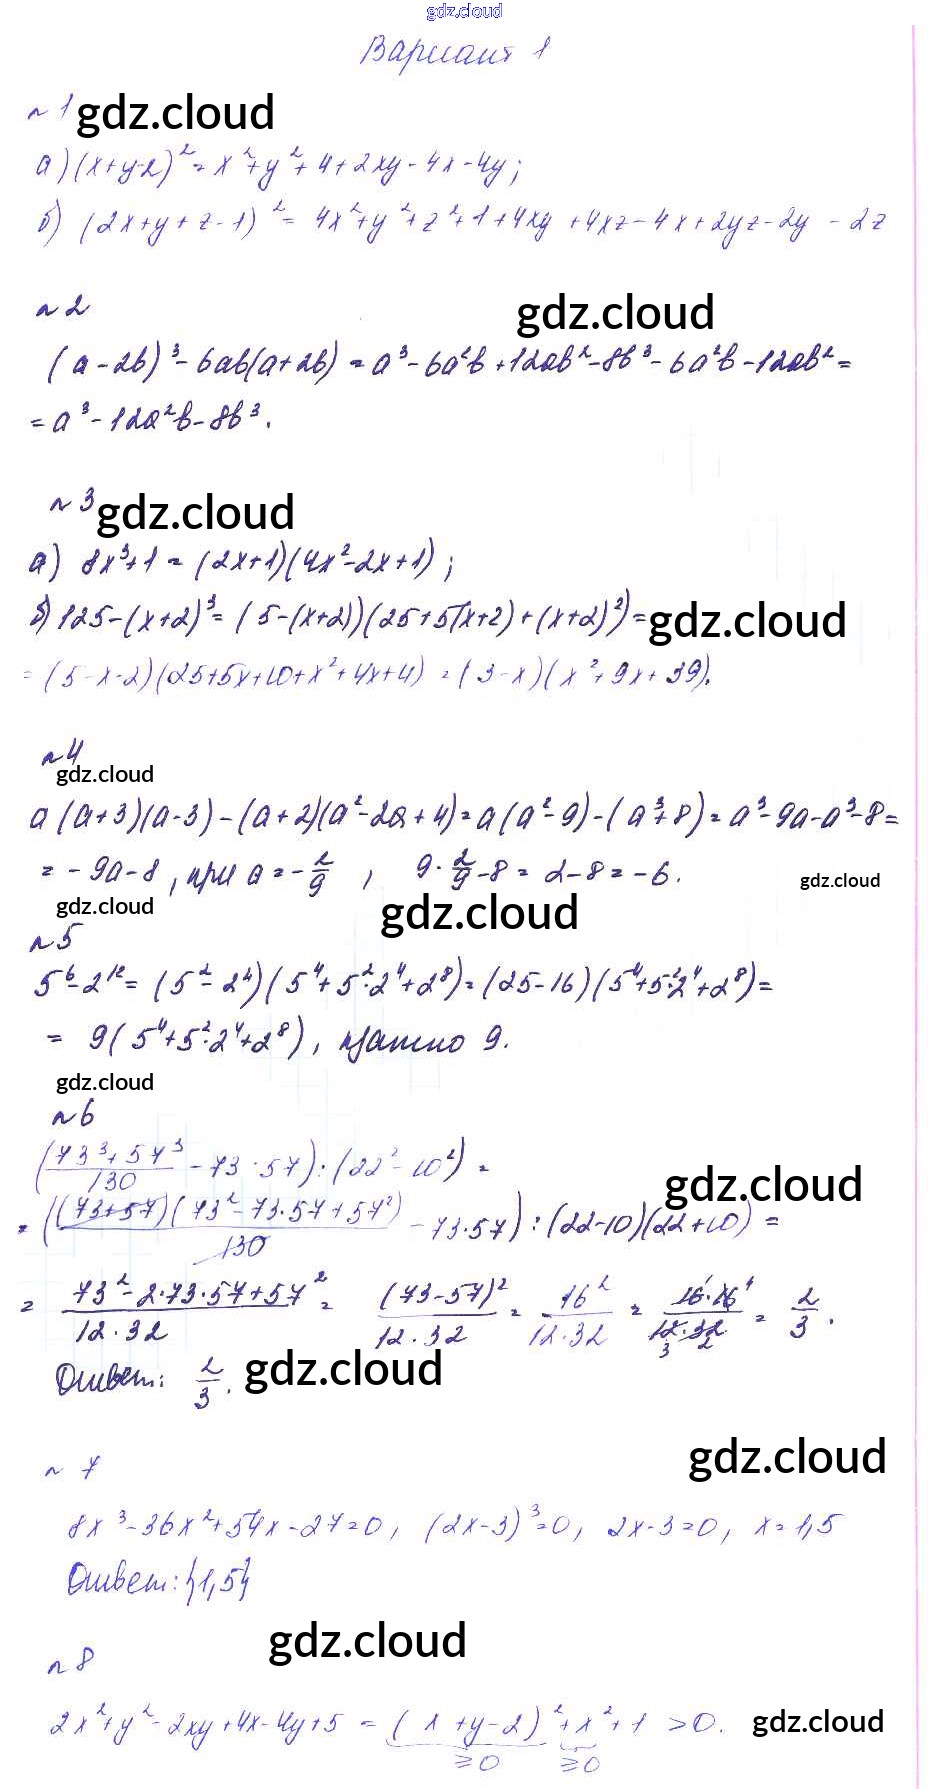 gdz.cloud
Вариант 1
n 1 gdz.cloud
а) (x+y-2)² = x²+y²+4+2xy-4x-4y;
б) (2x+y+z-1)² = 4x²+y²+z²+1+4xy+4xz-4x+2yz-2y-2z
n 2 gdz.cloud
(a-2b)³-6ab(a+2b) = a³-6a²b+12ab²-8b³-6a²b-12ab² =
= a³-12a²b-8b³.
n 3 gdz.cloud
а) 8x³+1 = (2x+1)(4x²-2x+1);
б) 125-(x+2)³ = (5-(x+2))(25+5(x+2)+(x+2)²) = gdz.cloud
= (5-x-2)(25+5x+10+x²+4x+4) = (3-x)(x²+9x+39).
n 4
gdz.cloud
a(a+3)(a-3)-(a+2)(a²-2a+4) = a(a²-9)-(a³+8) = a³-9a-a³-8 =
= -9a-8, при a = -2/9, 9·2/9-8 = 2-8 = -6. gdz.cloud
gdz.cloud gdz.cloud
n 5
5⁶-2¹² = (5²-2⁴)(5⁴+5²·2⁴+2⁸) = (25-16)(5⁴+5²·2⁴+2⁸) =
= 9(5⁴+5²·2⁴+2⁸), кратно 9.
gdz.cloud
n 6
((73³+57³)/130 - 73·57) : (22²-10²) =
gdz.cloud
= ((73+57)(73²-73·57+57²)/130 - 73·57) : (22-10)(22+10) =
= (73²-2·73·57+57²)/(12·32) = (73-57)²/(12·32) = 16²/(12·32) = 16·16/(12·32) = 2/3.
Ответ: 2/3. gdz.cloud
n 7 gdz.cloud
8x³-36x²+54x-27=0, (2x-3)³=0, 2x-3=0, x=1,5
Ответ: {1,5}
gdz.cloud
n 8
2x²+y²-2xy+4x-4y+5 = (x+y-2)²+x²+1 >0. gdz.cloud
≥0 ≥0